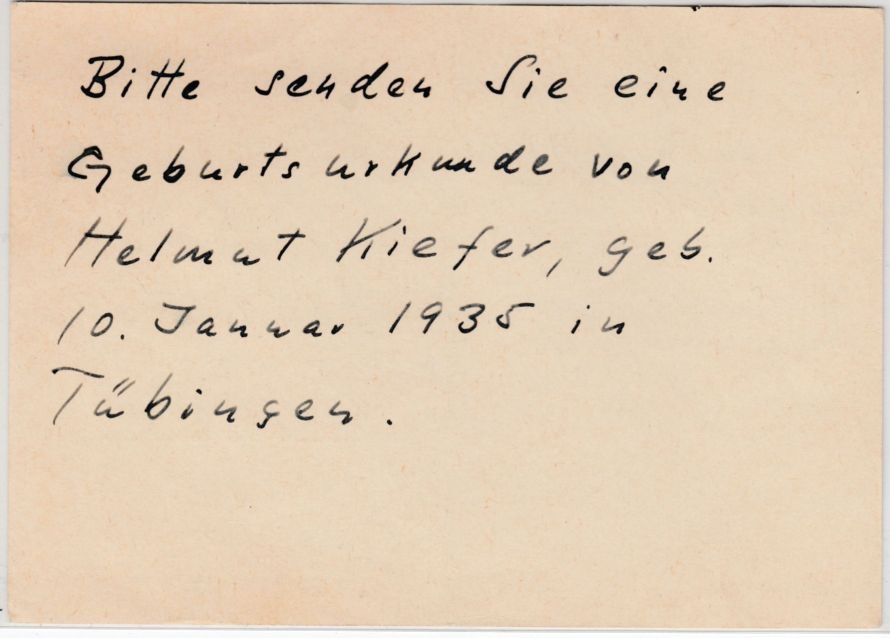 Bitte senden Sie eine
Geburtsurkunde von
Helmut Kiefer, geb.
10. Januar 1935 in
Tübingen.